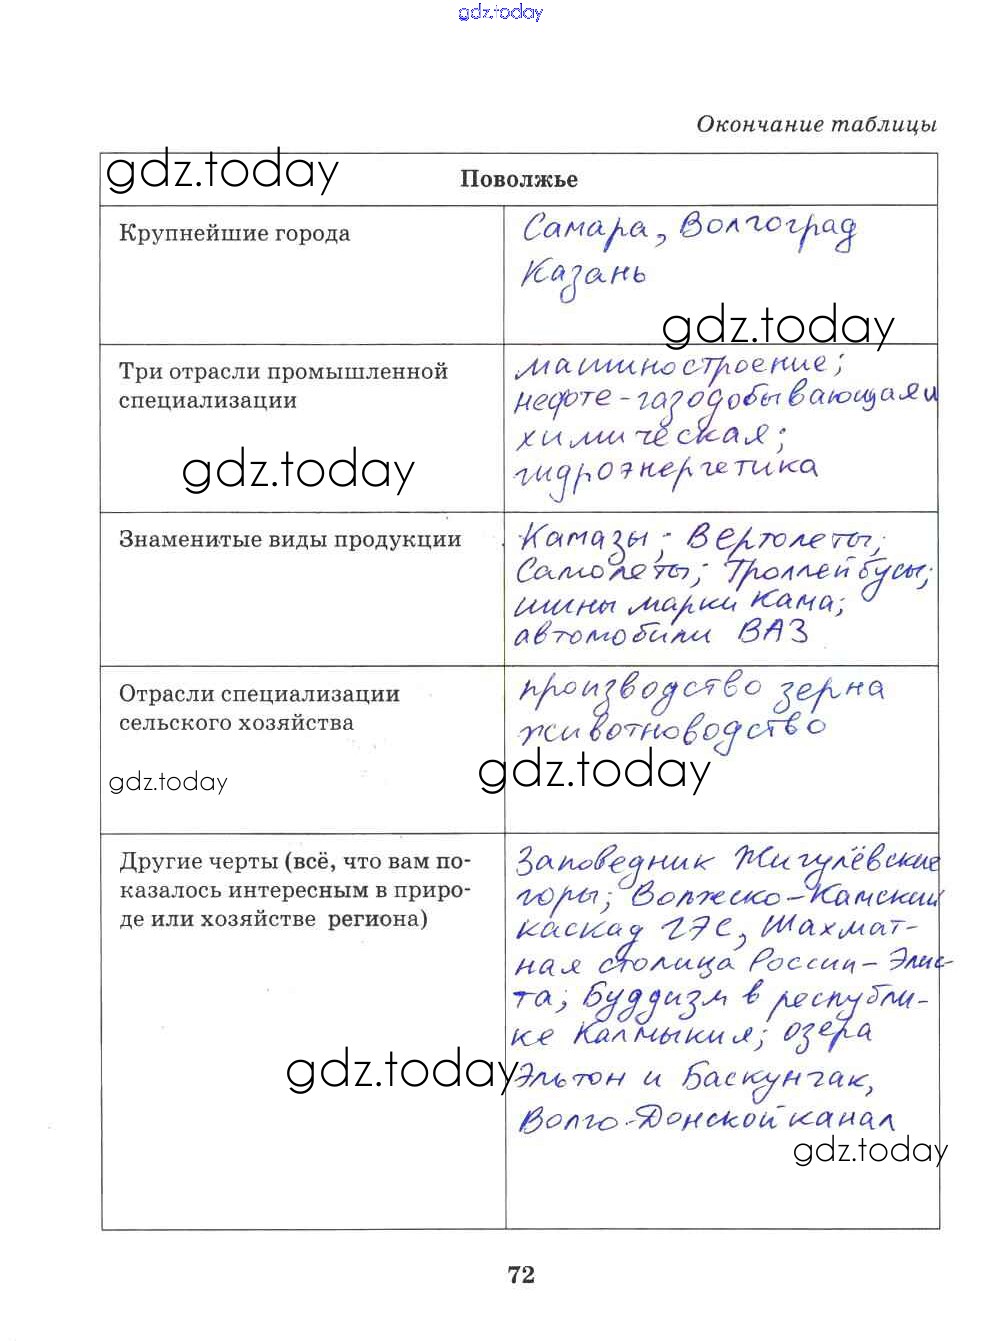 gdz.today
Окончание таблицы
gdz.today
Поволжье
Крупнейшие города
Самара, Волгоград
Казань
gdz.today
Три отрасли промышленной
специализации
машиностроение;
нефте-газодобывающая и
химическая;
гидроэнергетика
gdz.today
Знаменитые виды продукции
Камазы; Вертолеты;
Самолеты; Троллейбусы;
шины марки Кама;
автомобили ВАЗ
Отрасли специализации
сельского хозяйства
производство зерна
животноводство
gdz.today
gdz.today
Другие черты (всё, что вам по-
казалось интересным в приро-
де или хозяйстве региона)
Заповедник Жигулёвские
горы; Волжско-Камский
каскад ГЭС, Шахмат-
ная столица России - Элис-
та; Буддизм в республи-
ке Калмыкия; озера
Эльтон и Баскунчак,
Волго-Донской канал
gdz.today
gdz.today
72